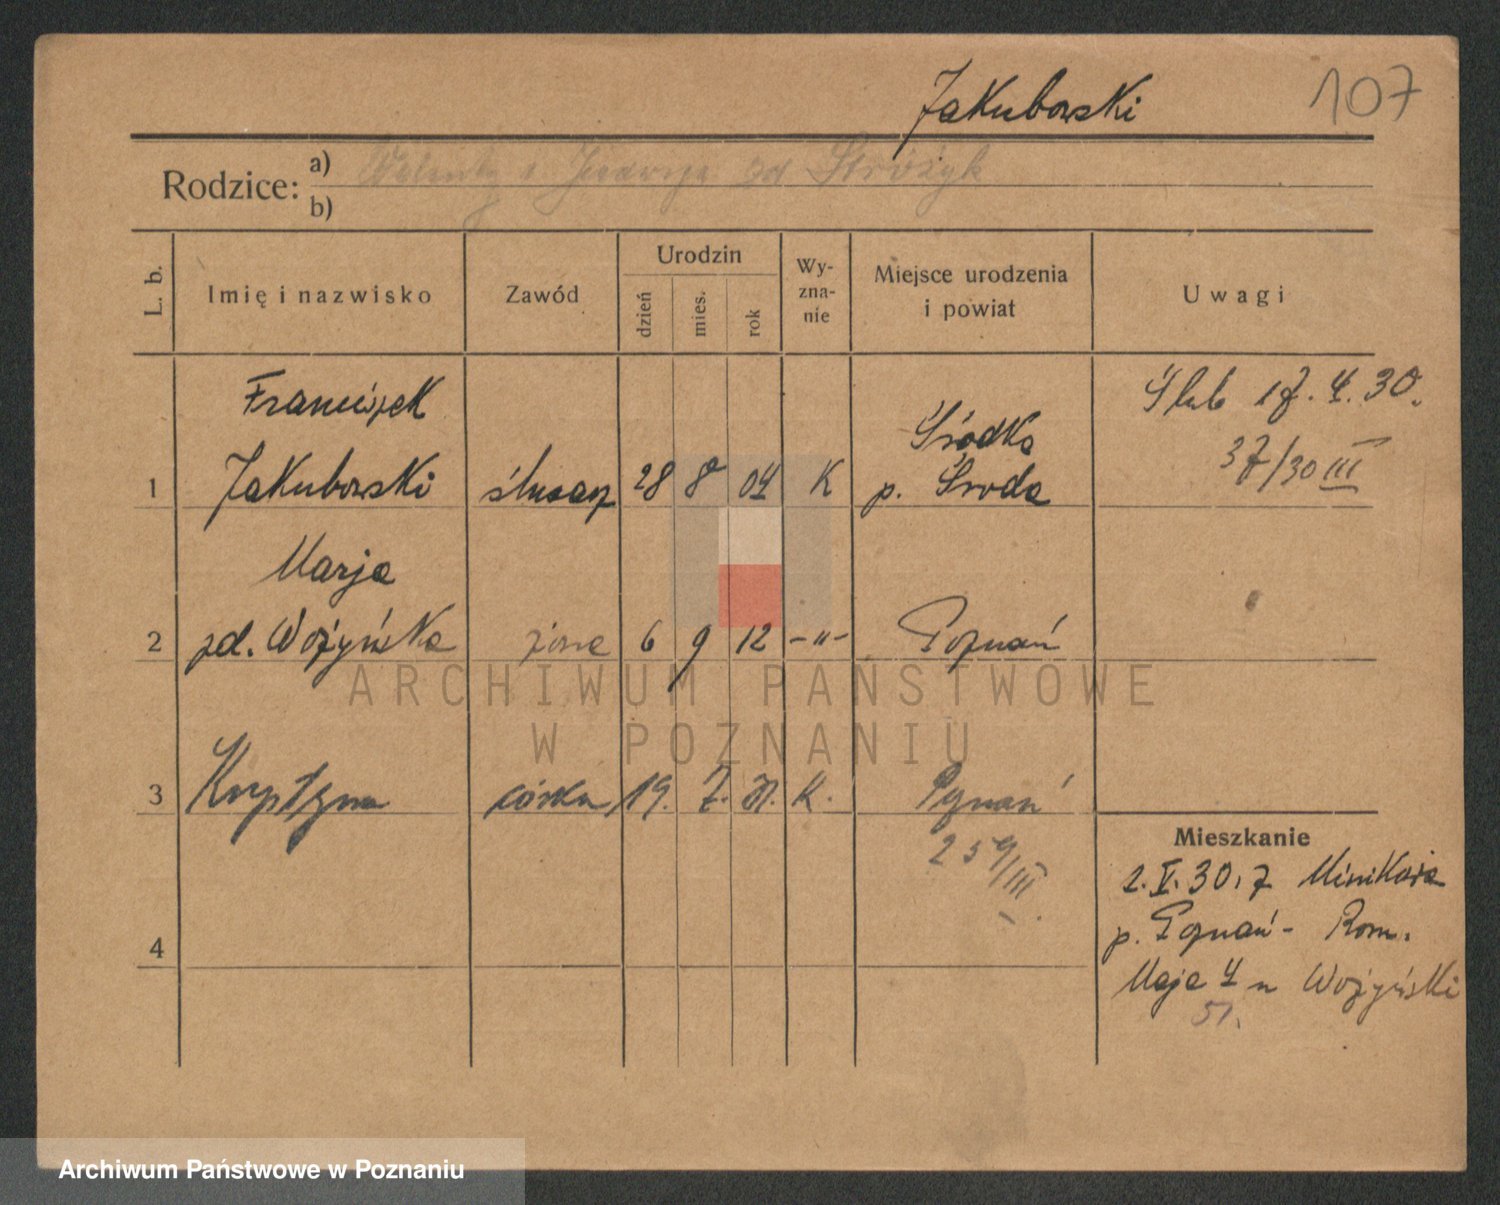 Jakubowski
107
Rodzice: a) Walenty i Jadwiga zd Stróżyk
b)
L. b.
Imię i nazwisko
Zawód
Urodzin
dzień
mies.
rok
Wy-
zna-
nie
Miejsce urodzenia
i powiat
Uwagi
Franciszek
Jakubowski
1
ślusarz
28 8 04
K
Śródka
p. Środa
Ślub 17. 4. 30.
37/30 III
Marja
2
zd. Wożyńska
żona
6 9 12
-"-
Poznań
3
Krystyna
córka
19. 7. 31.
K.
Poznań
259/III
4
Mieszkanie
2. V. 30. z Minikowa
p. Poznań - Rom.
Maja 4 u Wożyński
51.
ARCHIWUM PAŃSTWOWE
W POZNANIU
Archiwum Państwowe w Poznaniu